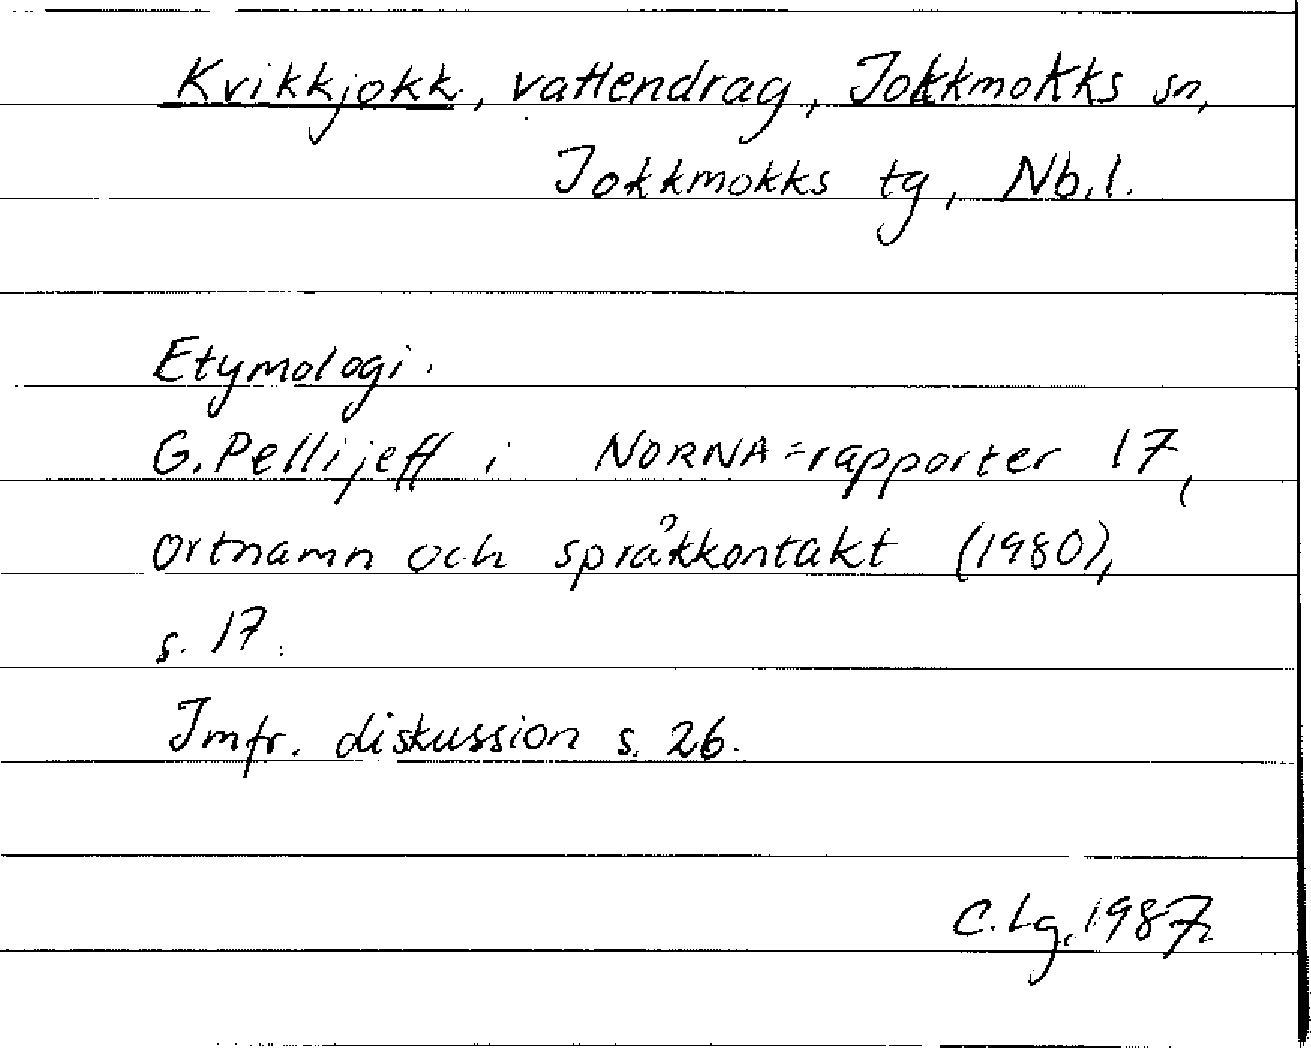 Kvikkjokk, vattendrag, Jokkmokks sn,
Jokkmokks tg, Nb.l.
Etymologi.
G. Pellijeff i NORNA-rapporter 17,
Ortnamn och språkkontakt (1980),
s. 17.
Jmfr. diskussion s. 26.
C. Lg. 1987.